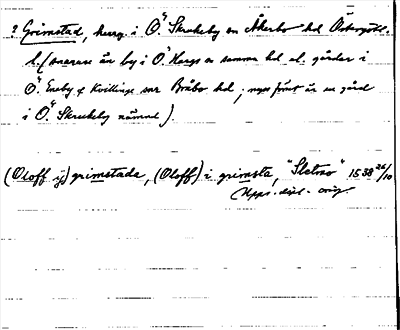 ? Grimstad, herrg. i Ö. Skrukeby sn Åkerbo hd Östergötl.
l. (snarare än by i Ö. Hargs sn samma hd el. gårder i
Ö. Eneby o. Kvillinge snr Bråbo hd; men först är en gård
i Ö. Skrukeby nämnd).
(Oloff ij) grimstada, (Oloff) i grimsta, "Sletmo" 1538 26/10
Upps. dipl. orig.